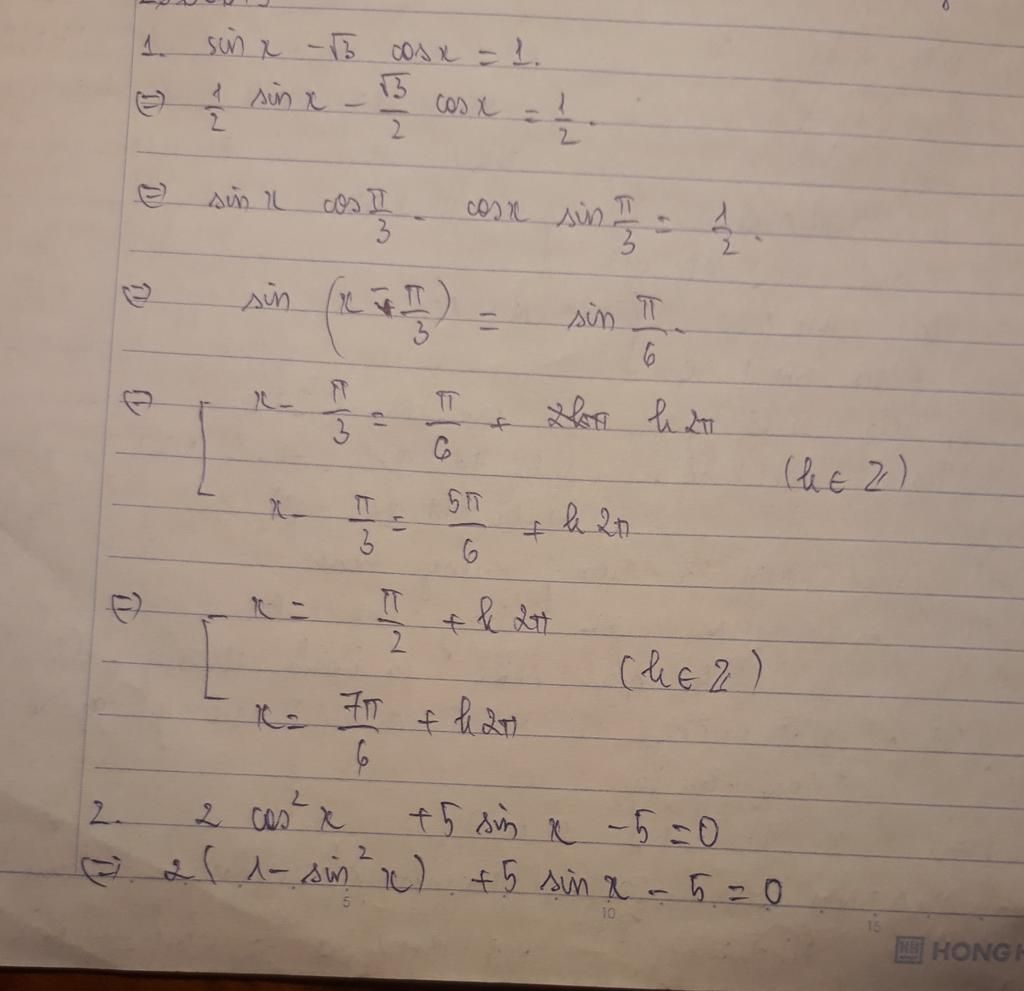 1. sin x - √3 cosx = 1.
⇔ 1/2 sin x - √3/2 cosx = 1/2.
⇔ sin x cos π/3 - cosx sin π/3 = 1/2.
⇔ sin (x - π/3) = sin π/6.
⇔ [ x - π/3 = π/6 + k2π
(k ∈ Z)
x - π/3 = 5π/6 + k2π
⇔ [ x = π/2 + k2π
(k ∈ Z)
x = 7π/6 + k2π
2. 2 cos² x + 5 sin x - 5 = 0
⇔ 2(1 - sin² x) + 5 sin x - 5 = 0
5 10 15